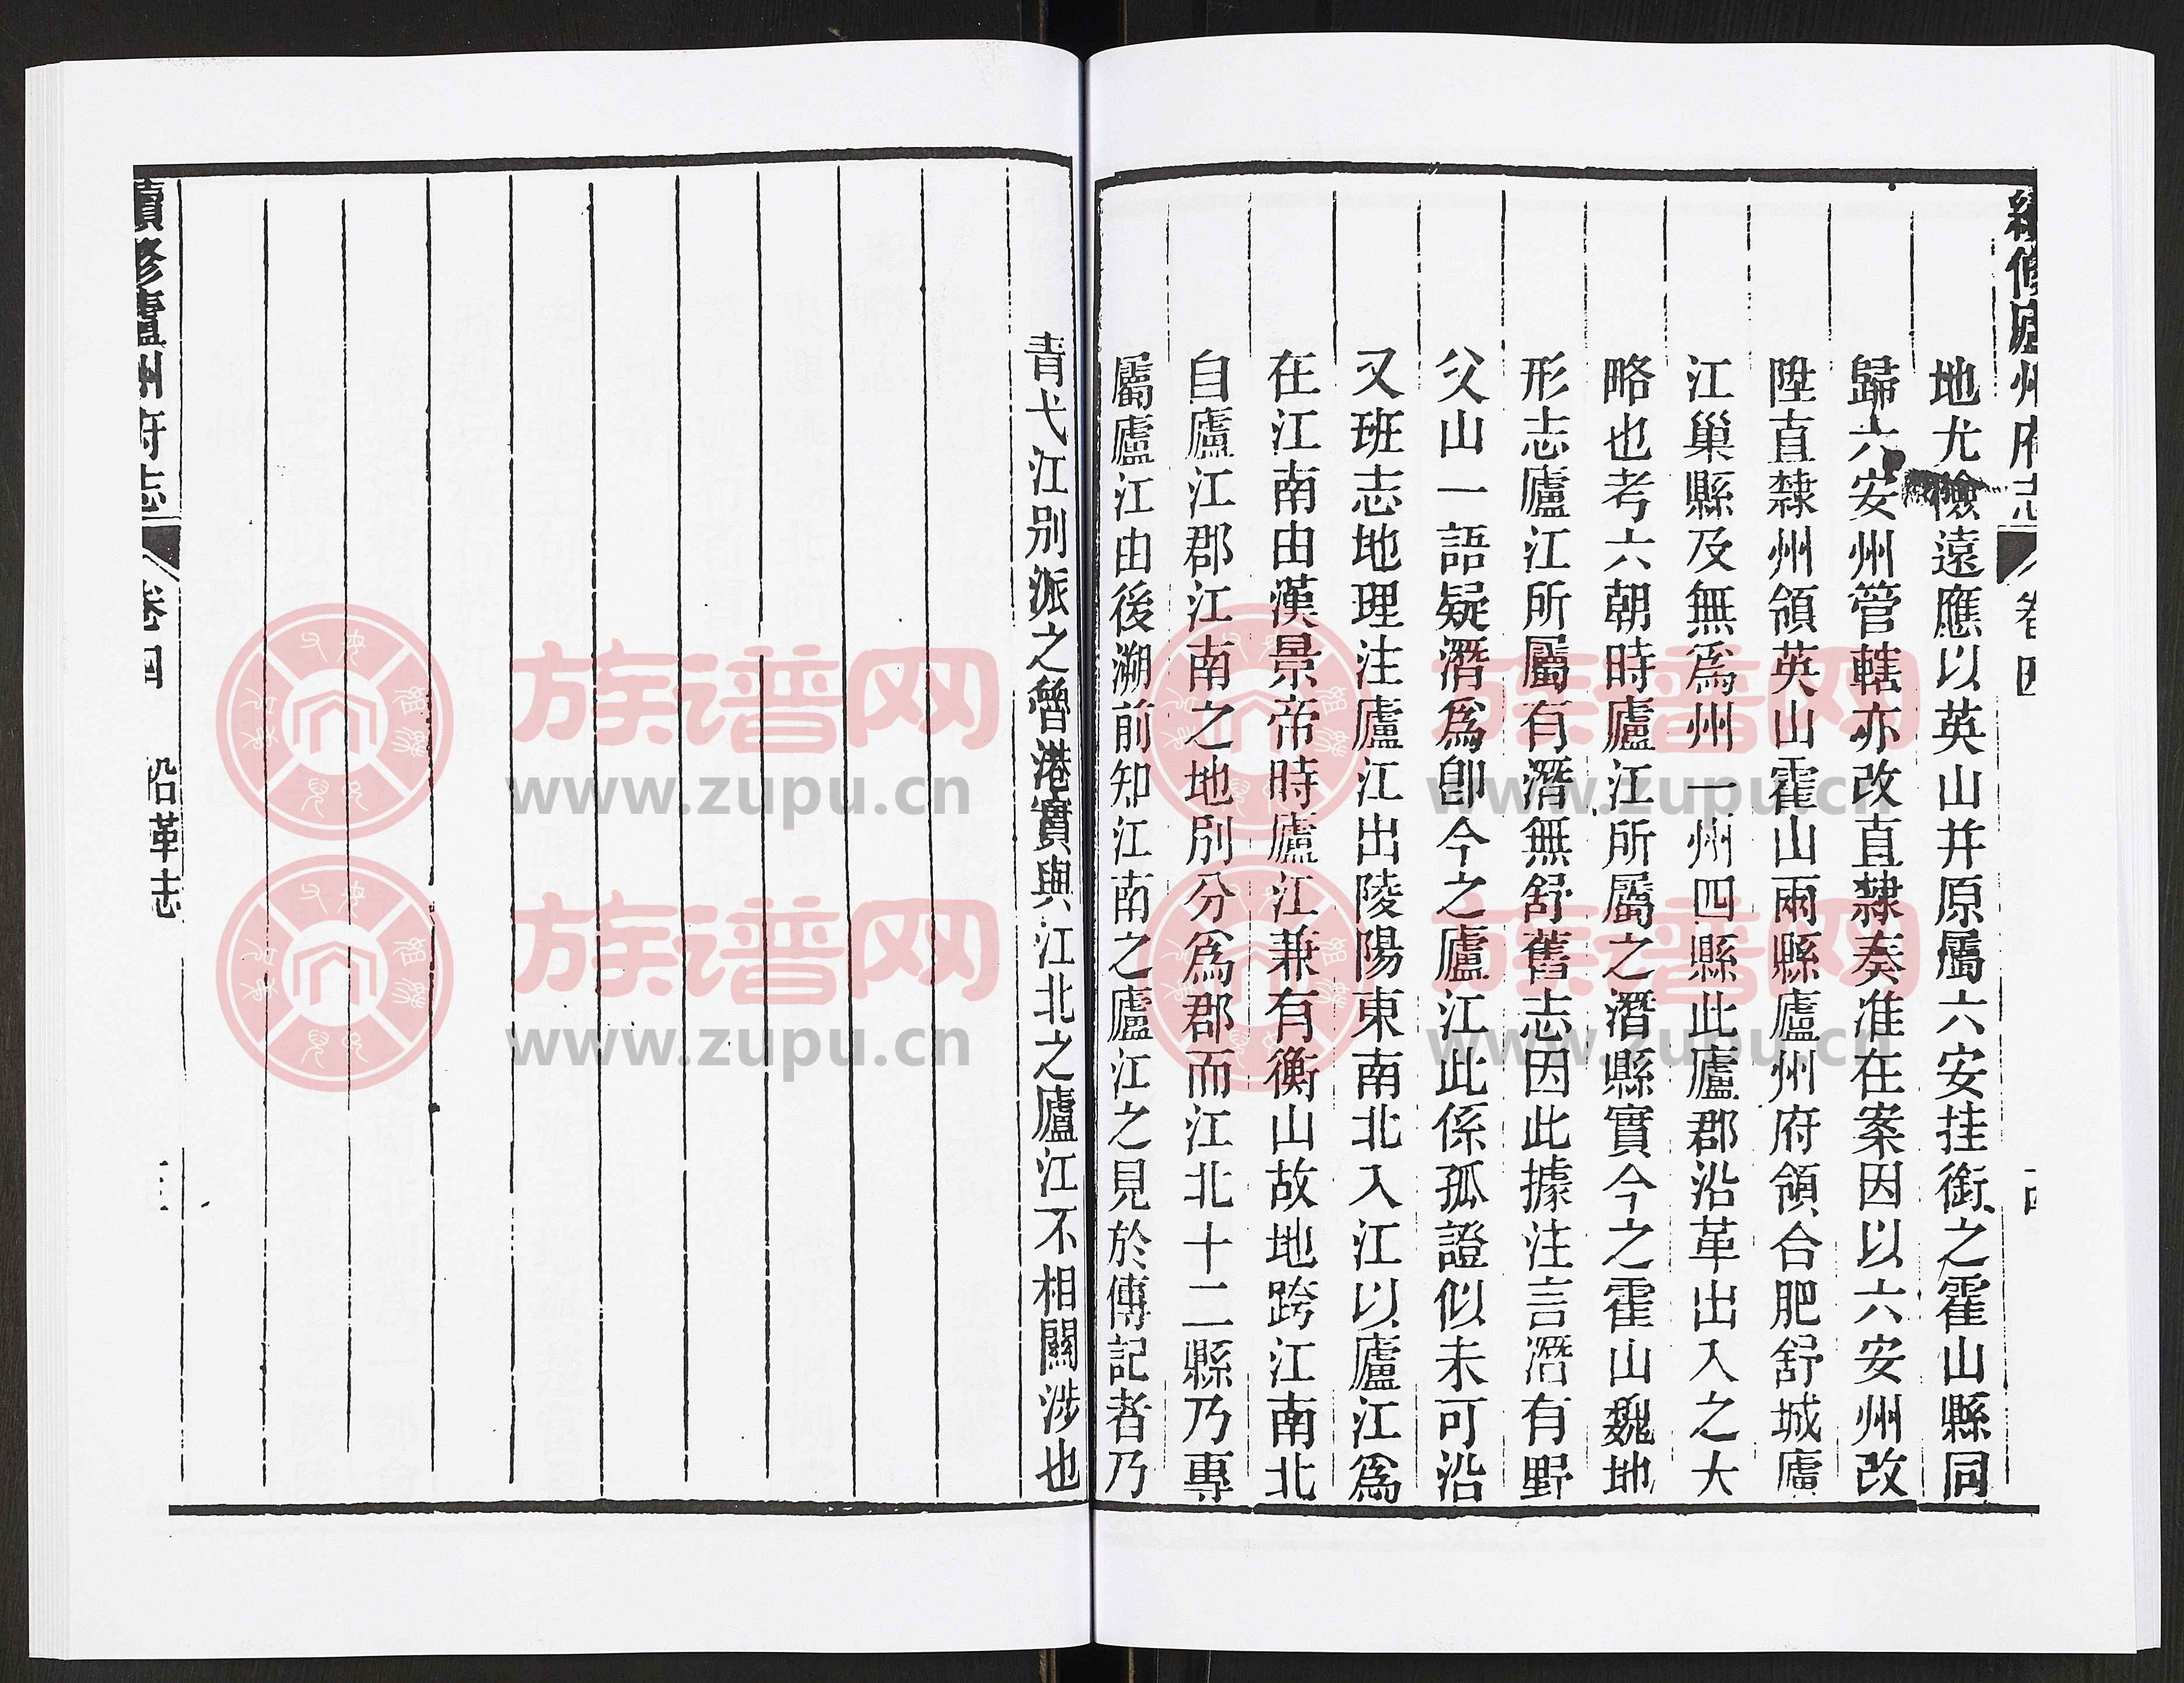 續修廬州府志 卷四
地尤險遠應以英山并原屬六安挂銜之霍山縣同
歸六安州管轄亦改直隸奏准在案因以六安州改
陞直隸州領英山霍山兩縣廬州府領合肥舒城廬
江巢縣及無爲州一州四縣此廬郡沿革出入之大
略也考六朝時廬江所屬之潛縣實今之霍山魏地
形志廬江所屬有潛無舒舊志因此據注言潛有野
父山一語疑潛爲卽今之廬江此係孤證似未可沿
又班志地理注廬江出陵陽東南北入江以廬江爲
在江南由漢景帝時廬江兼有衡山故地跨江南北
自廬江郡江南之地別分爲郡而江北十二縣乃專
屬廬江由後溯前知江南之廬江之見於傳記者乃
青弋江別派之魯港實與江北之廬江不相關涉也
續修廬州府志 卷四 沿革志
族谱网
www.zupu.cn
族谱网
www.zupu.cn
族谱网
www.zupu.cn
族谱网
www.zupu.cn